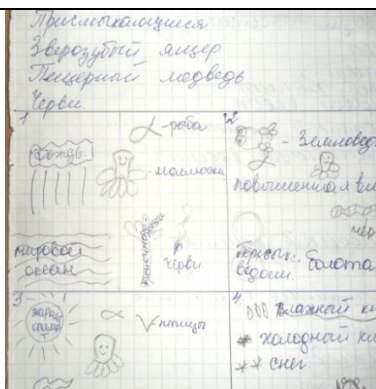 Пресмыкающиеся
Зверозубый ящер
Пещерный медведь
Черви
1
дождь
рыба
моллюски
мировой океан
черви
2
- Земновод
повышенная вл
чер
водоем.
болота
3
жарко
птицы
4
влажный кл
холодный кл
снег